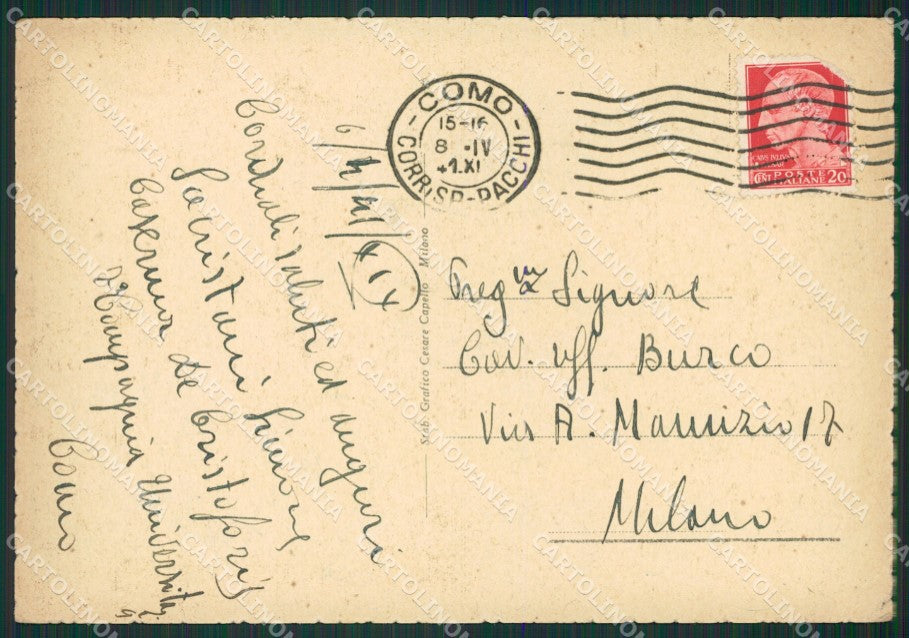 COMO
15-16
8 -IV
41.XI
CORRISP-PACCHI
POSTE
CENT ITALIANE 20
6/4/41/XIX
Cordiali saluti ed auguri
Sacristani Simone
Caserma De Cristoforis
Compagnia Universit.
Como
Stab. Grafico Cesare Capello Milano
Preg. Signore
Cav. Uff. Burco
Via A. Maurizio 17
Milano
CARTOLINOMANIA